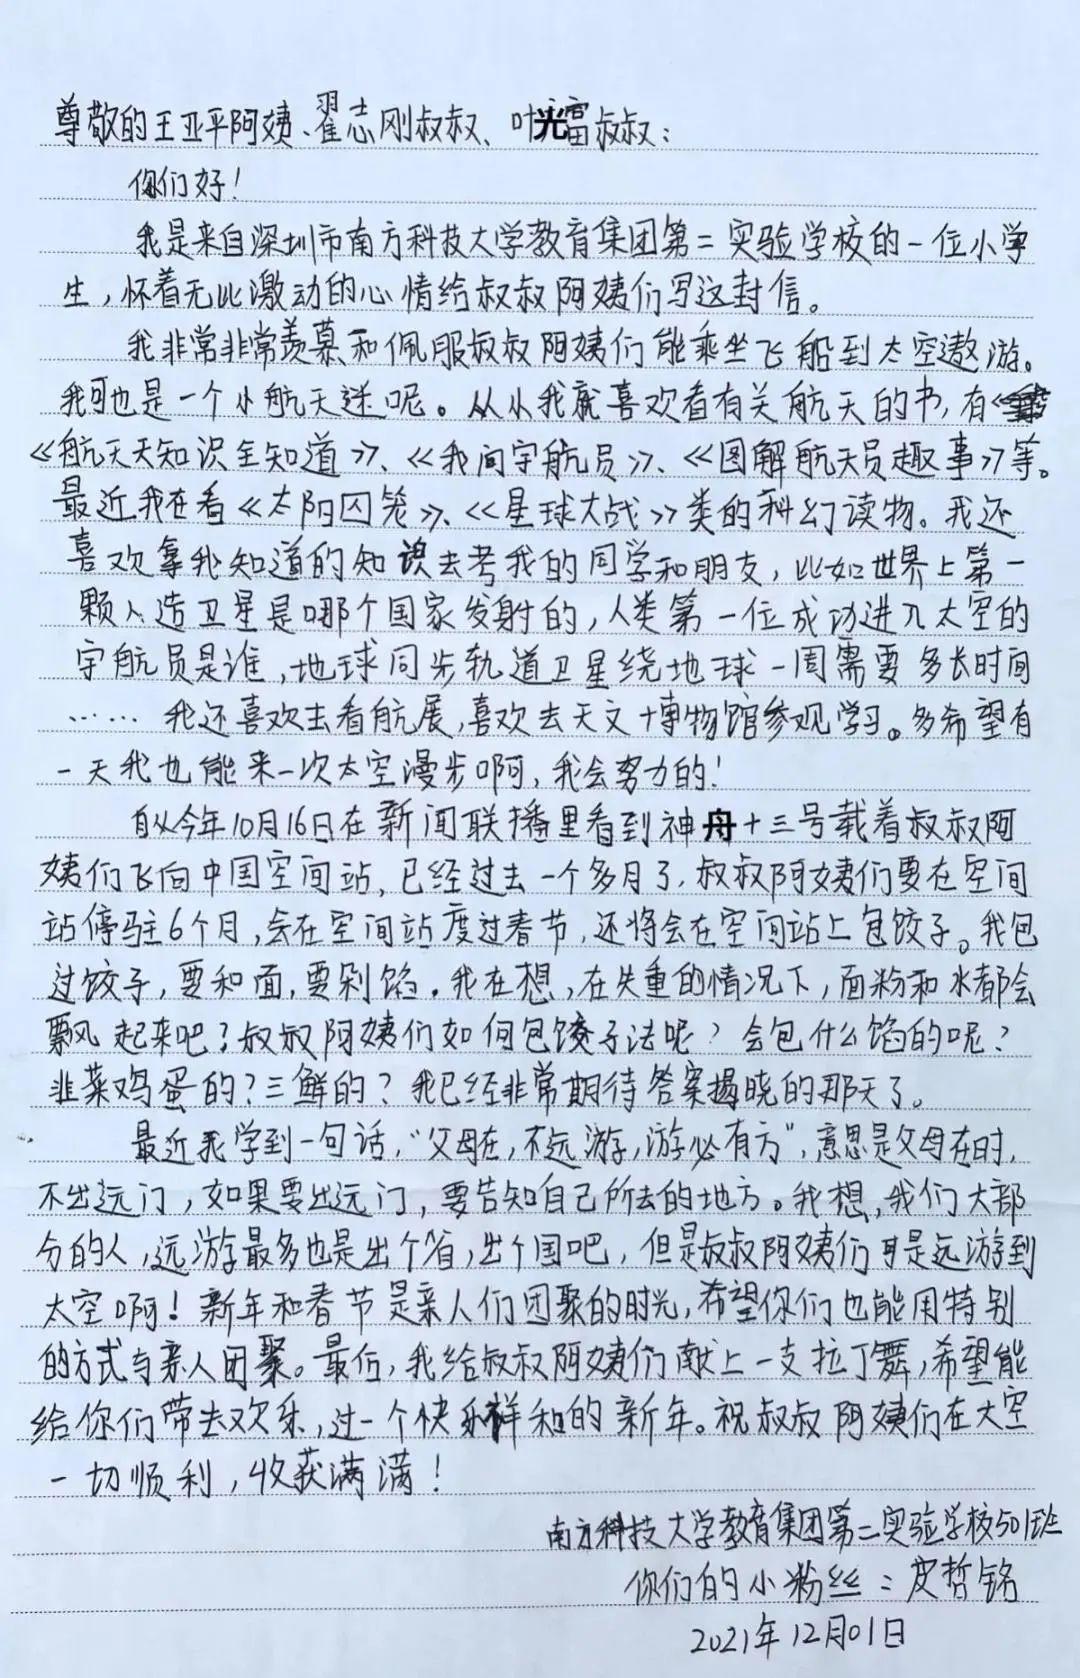 尊敬的王亚平阿姨、翟志刚叔叔、叶光富叔叔：
你们好！
我是来自深圳市南方科技大学教育集团第二实验学校的一位小学
生，怀着无比激动的心情给叔叔阿姨们写这封信。
我非常非常羡慕和佩服叔叔阿姨们能乘坐飞船到太空遨游。
我可也是一个小航天迷呢。从小我就喜欢看有关航天的书，有
《航天天知识全知道》、《我问宇航员》、《图解航天员趣事》等。
最近我在看《太阳囚笼》、《星球大战》类的科幻读物。我还
喜欢拿我知道的知识去考我的同学和朋友，比如世界上第一
颗人造卫星是哪个国家发射的，人类第一位成功进入太空的
宇航员是谁，地球同步轨道卫星绕地球一周需要多长时间
……我还喜欢去看航展，喜欢去天文博物馆参观学习。多希望有
一天我也能来一次太空漫步啊，我会努力的！
自从今年10月16日在新闻联播里看到神舟十三号载着叔叔阿
姨们飞向中国空间站，已经过去一个多月了，叔叔阿姨们要在空间
站停驻6个月，会在空间站度过春节，还将会在空间站上包饺子。我包
过饺子，要和面，要剁馅。我在想，在失重的情况下，面粉和水都会
飘起来吧？叔叔阿姨们如何包饺子法呢？会包什么馅的呢？
韭菜鸡蛋的？三鲜的？我已经非常期待答案揭晓的那天了。
最近我学到一句话，“父母在，不远游，游必有方”，意思是父母在时，
不出远门，如果要出远门，要告知自己所去的地方。我想，我们大部
分的人，远游最多也是出个省，出个国吧，但是叔叔阿姨们可是远游到
太空啊！新年和春节是亲人们团聚的时光，希望你们也能用特别
的方式与亲人团聚。最后，我给叔叔阿姨们献上一支拉丁舞，希望能
给你们带去欢乐，过一个快乐祥和的新年。祝叔叔阿姨们在太空
一切顺利，收获满满！
南方科技大学教育集团第二实验学校501班
你们的小粉丝：皮哲铭
2021年12月01日